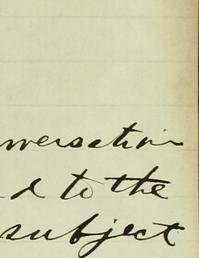 nversation
d to the
subject